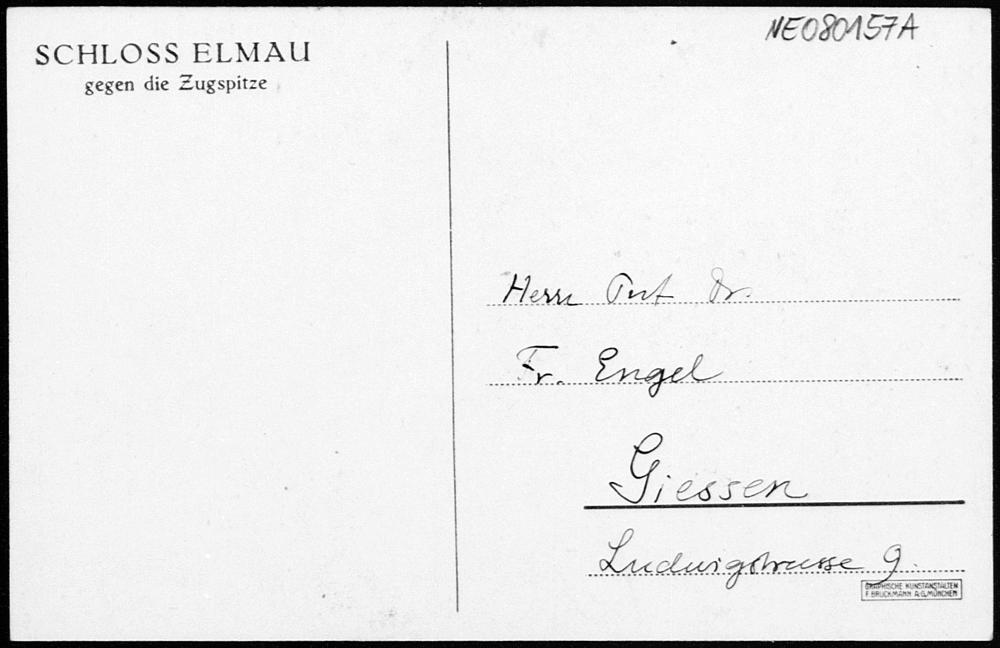 NE080157A
SCHLOSS ELMAU
gegen die Zugspitze
Herrn Dr.
Fr. Engel
Giessen
Ludwigstrasse 9.
GRAPHISCHE KUNSTANSTALTEN
F. BRUCKMANN A.G. MÜNCHEN